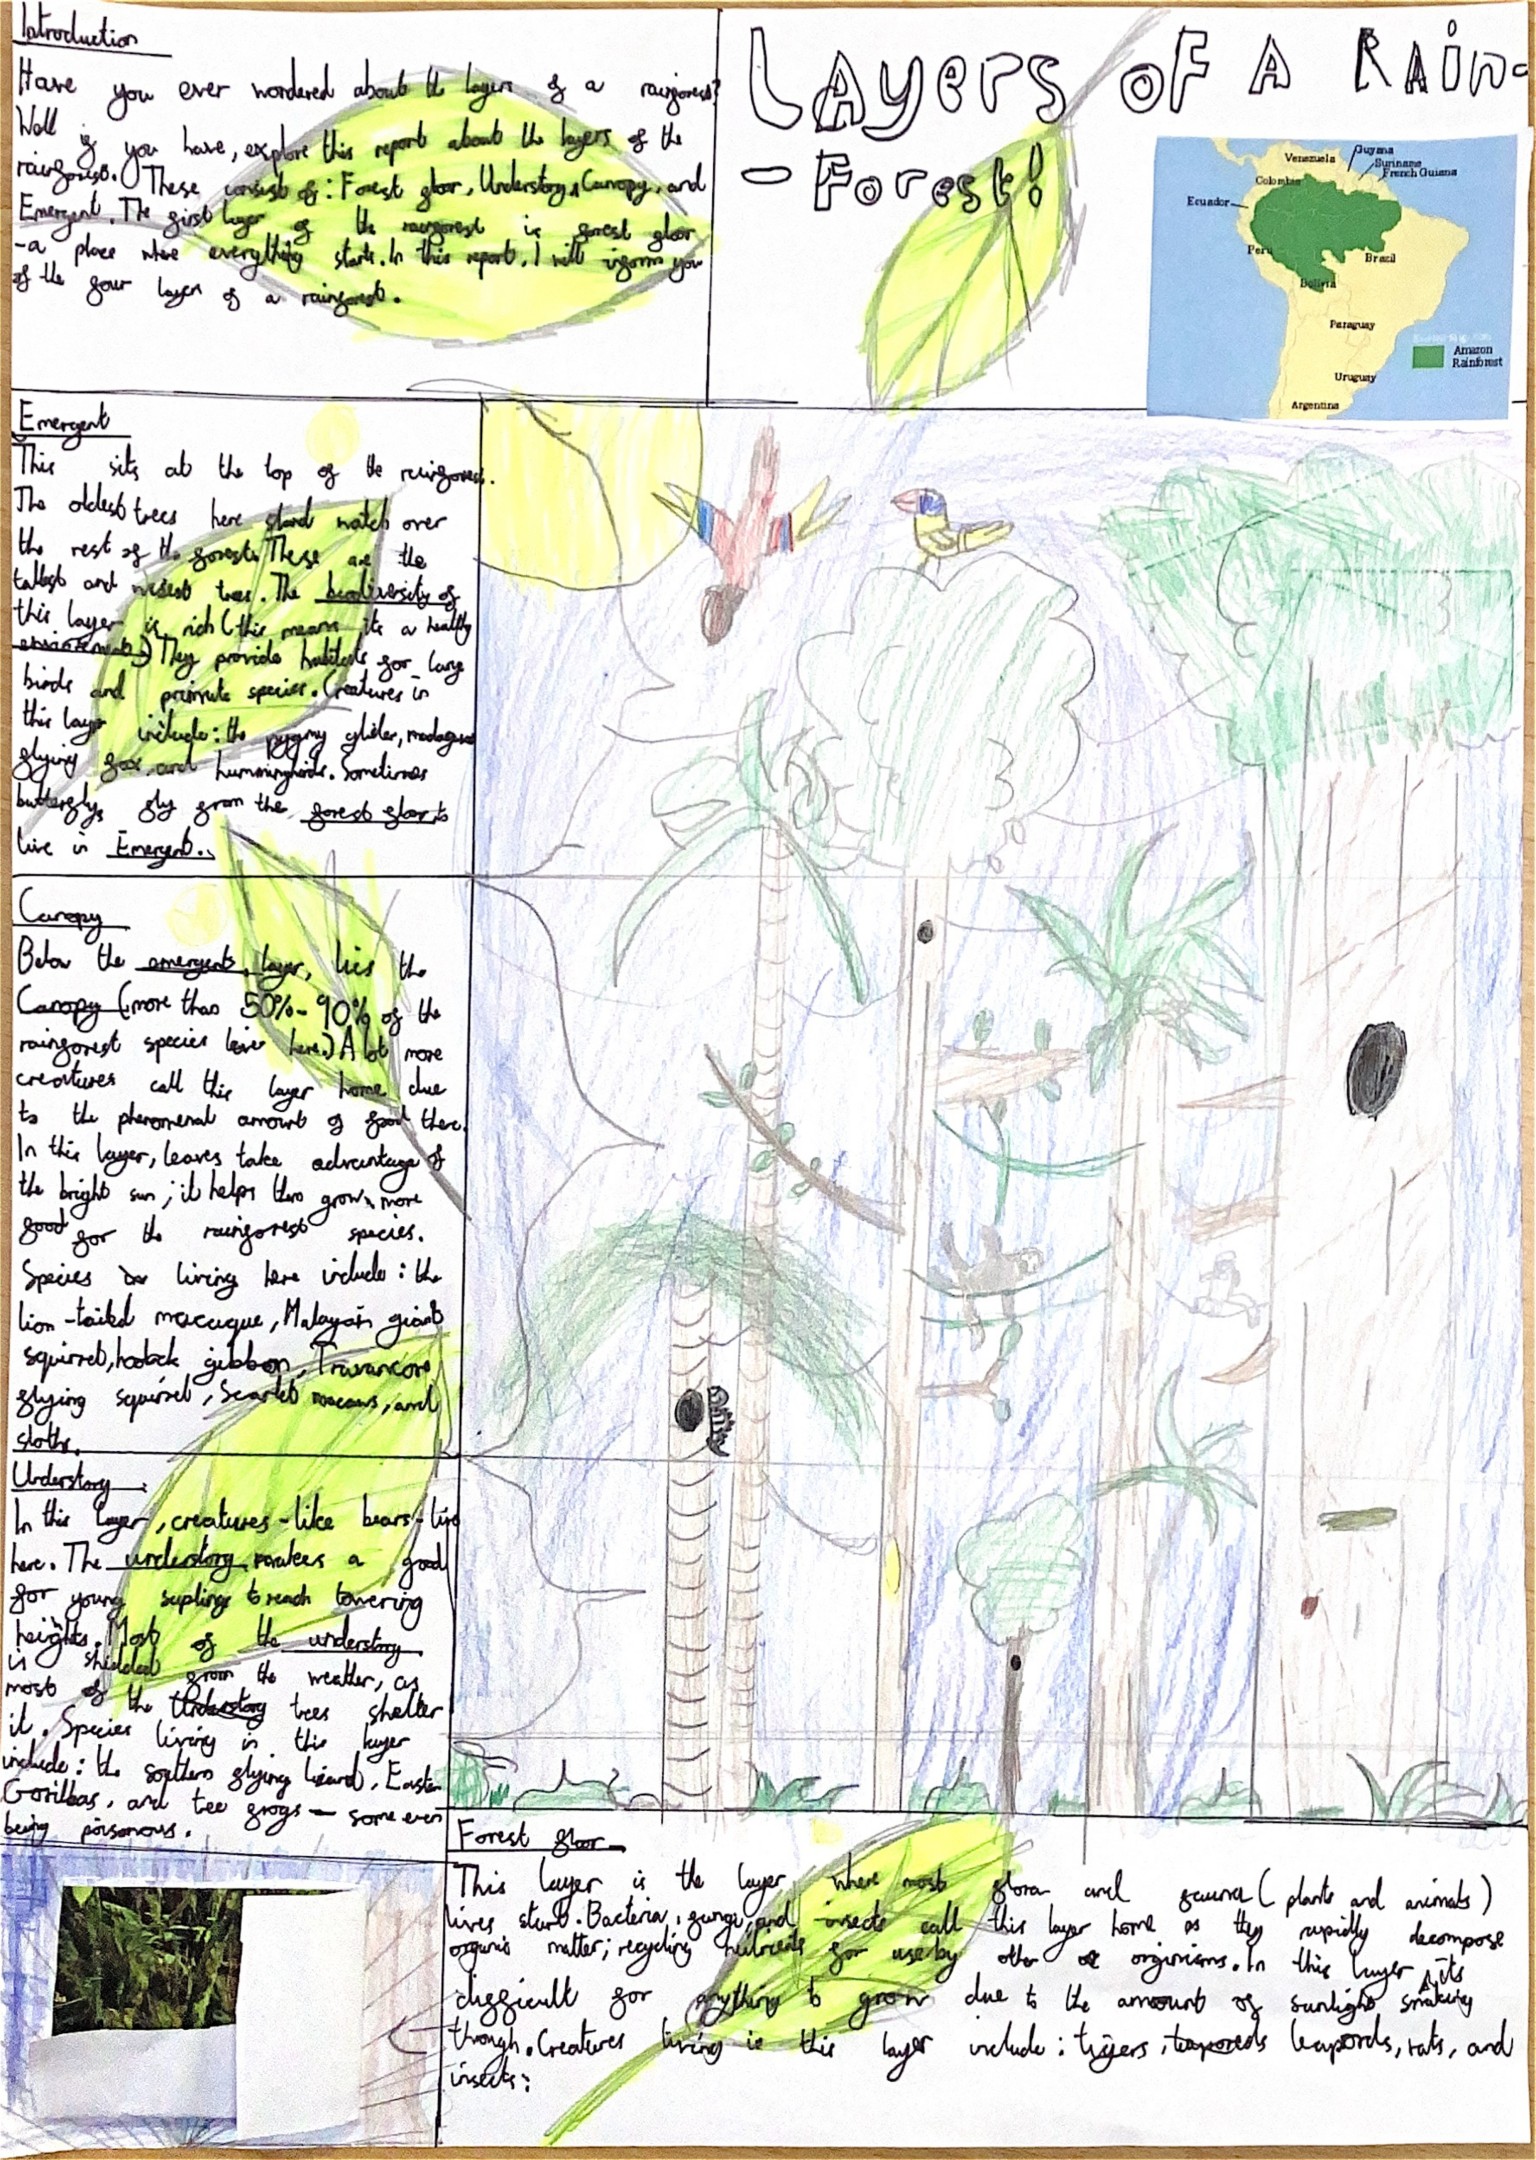 Introduction
Have you ever wondered about the layers of a rainforest?
Well if you have, explore this report about the layers of the
rainforest. These consist of: Forest floor, Understory, Canopy, and
Emergent. The first layer of the rainforest is forest floor
-a place where everything starts. In this report, I will inform you
of the four layers of a rainforest.
Layers of A Rain-
- Forest!
Venezuela
Guyana
Suriname
French Guiana
Colombia
Ecuador
Peru
Brazil
Bolivia
Paraguay
Amazon
Rainforest
Uruguay
Argentina
Emergent
This sits at the top of the rainforest.
The oldest trees here stand watch over
the rest of the forest. These are the
tallest and widest trees. The biodiversity of
this layer is rich (this means its a healthy
They provide habitats for large
birds and primate species. Creatures in
this layer include: the pygmy glider, madagascar
flying fox, and hummingbirds. Sometimes
butterflys fly from the forest floor to
live in Emergent.
Canopy
Below the emergent layer, lies the
Canopy (more than 50%-90% of the
rainforest species live here.) A lot more
creatures call this layer home due
to the phenomenal amount of food there.
In this layer, leaves take advantage of
the bright sun; it helps them grow more
food for the rainforest species.
Species living here include: the
lion-tailed macaque, Malayan giant
squirrel, hoolock gibbon, Travancore
flying squirrel, Scarlet macaws, and
sloths.
Understory
In this layer, creatures - like bears - live
here. The understory makes a good
for young saplings to reach towering
heights. Most of the understory
is shielded from the weather, as
most of the Understory trees shelter
it. Species living in this layer
include: the southern flying lizard, Eastern
Gorillas, and tee frogs - some even
being poisonous.
Forest floor
This layer is the layer where most flora and fauna (plants and animals)
lives start. Bacteria, fungi, and insects call this layer home as they rapidly decompose
organic matter; recycling nutrients for use by other organisms. In this layer, its
difficult for anything to grow due to the amount of sunlight
though. Creatures living in this layer include: tigers, leapords, rats, and
insects: